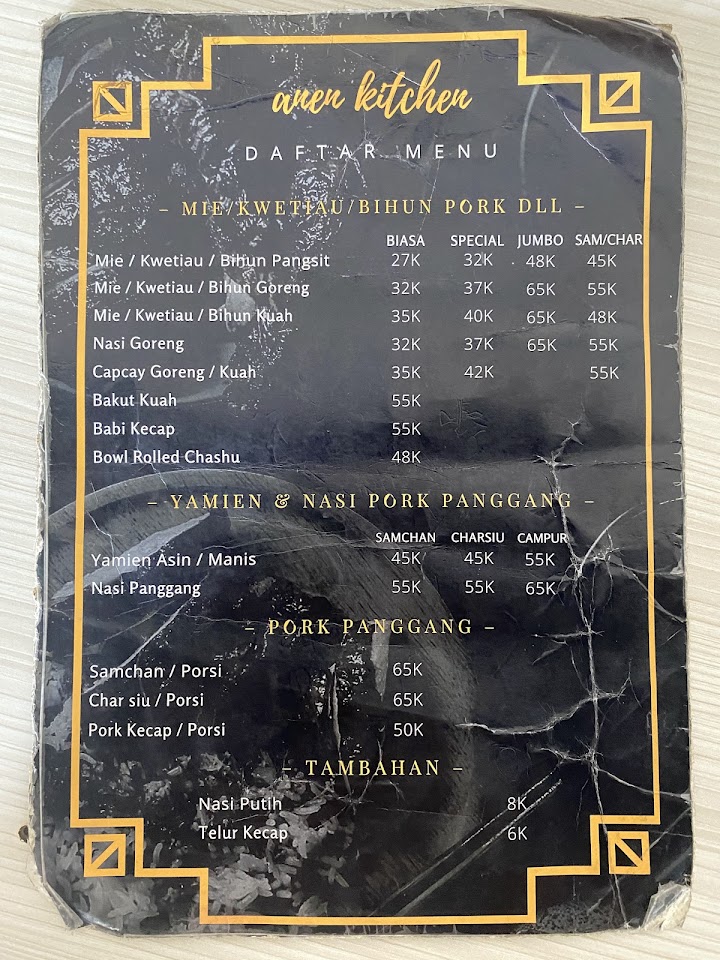 anen kitchen
DAFTAR MENU
– MIE/KWETIAU/BIHUN PORK DLL –
BIASA SPECIAL JUMBO SAM/CHAR
Mie / Kwetiau / Bihun Pangsit 27K 32K 48K 45K
Mie / Kwetiau / Bihun Goreng 32K 37K 65K 55K
Mie / Kwetiau / Bihun Kuah 35K 40K 65K 48K
Nasi Goreng 32K 37K 65K 55K
Capcay Goreng / Kuah 35K 42K 55K
Bakut Kuah 55K
Babi Kecap 55K
Bowl Rolled Chashu 48K
– YAMIEN & NASI PORK PANGGANG –
SAMCHAN CHARSIU CAMPUR
Yamien Asin / Manis 45K 45K 55K
Nasi Panggang 55K 55K 65K
– PORK PANGGANG –
Samchan / Porsi 65K
Char siu / Porsi 65K
Pork Kecap / Porsi 50K
– TAMBAHAN –
Nasi Putih 8K
Telur Kecap 6K